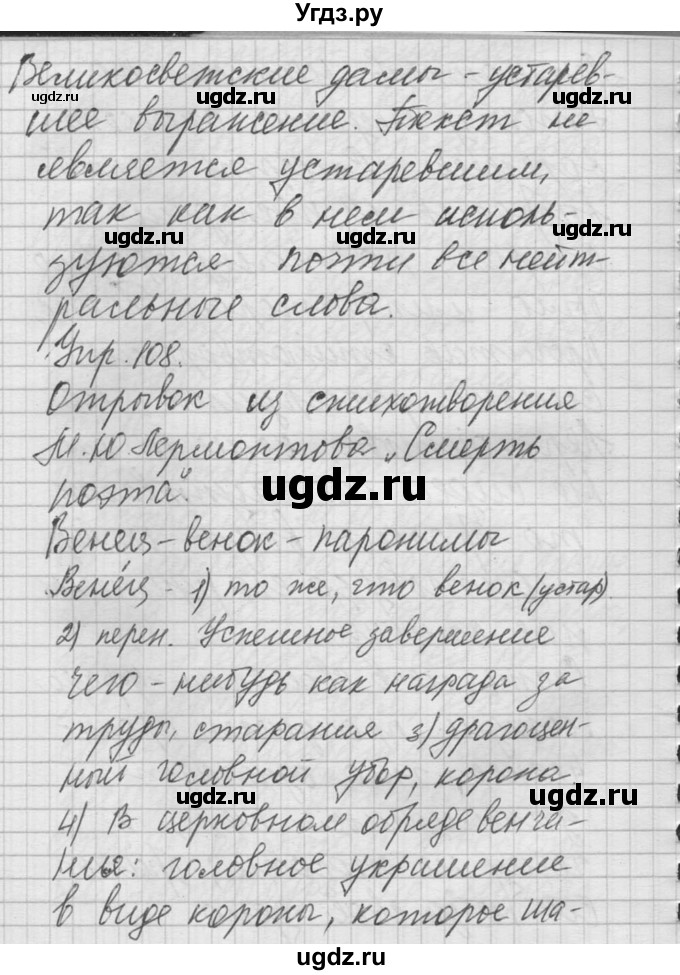 Угдз.ру
Великосветские дамы - устарев-
шее выражение. Текст не
является устаревшим,
так как в нем исполь-
зуются почти все нейт-
ральные слова.
Упр. 108.
Отрывок из стихотворения
М.Ю Лермонтова „Смерть
поэта".
Венец - венок - паронимы
Вене́ц - 1) то же, что венок (устар)
2) перен. Успешное завершение
чего-нибудь как награда за
труды, старания 3) драгоцен-
ный головной убор, корона
4) В церковном обряде венча-
нья: головное украшение
в виде короны, которое ша-
ugdz.ru
ugdz.ru
ugdz.ru
ugdz.ru
ugdz.ru
ugdz.ru
ugdz.ru
ugdz.ru
ugdz.ru
ugdz.ru
ugdz.ru